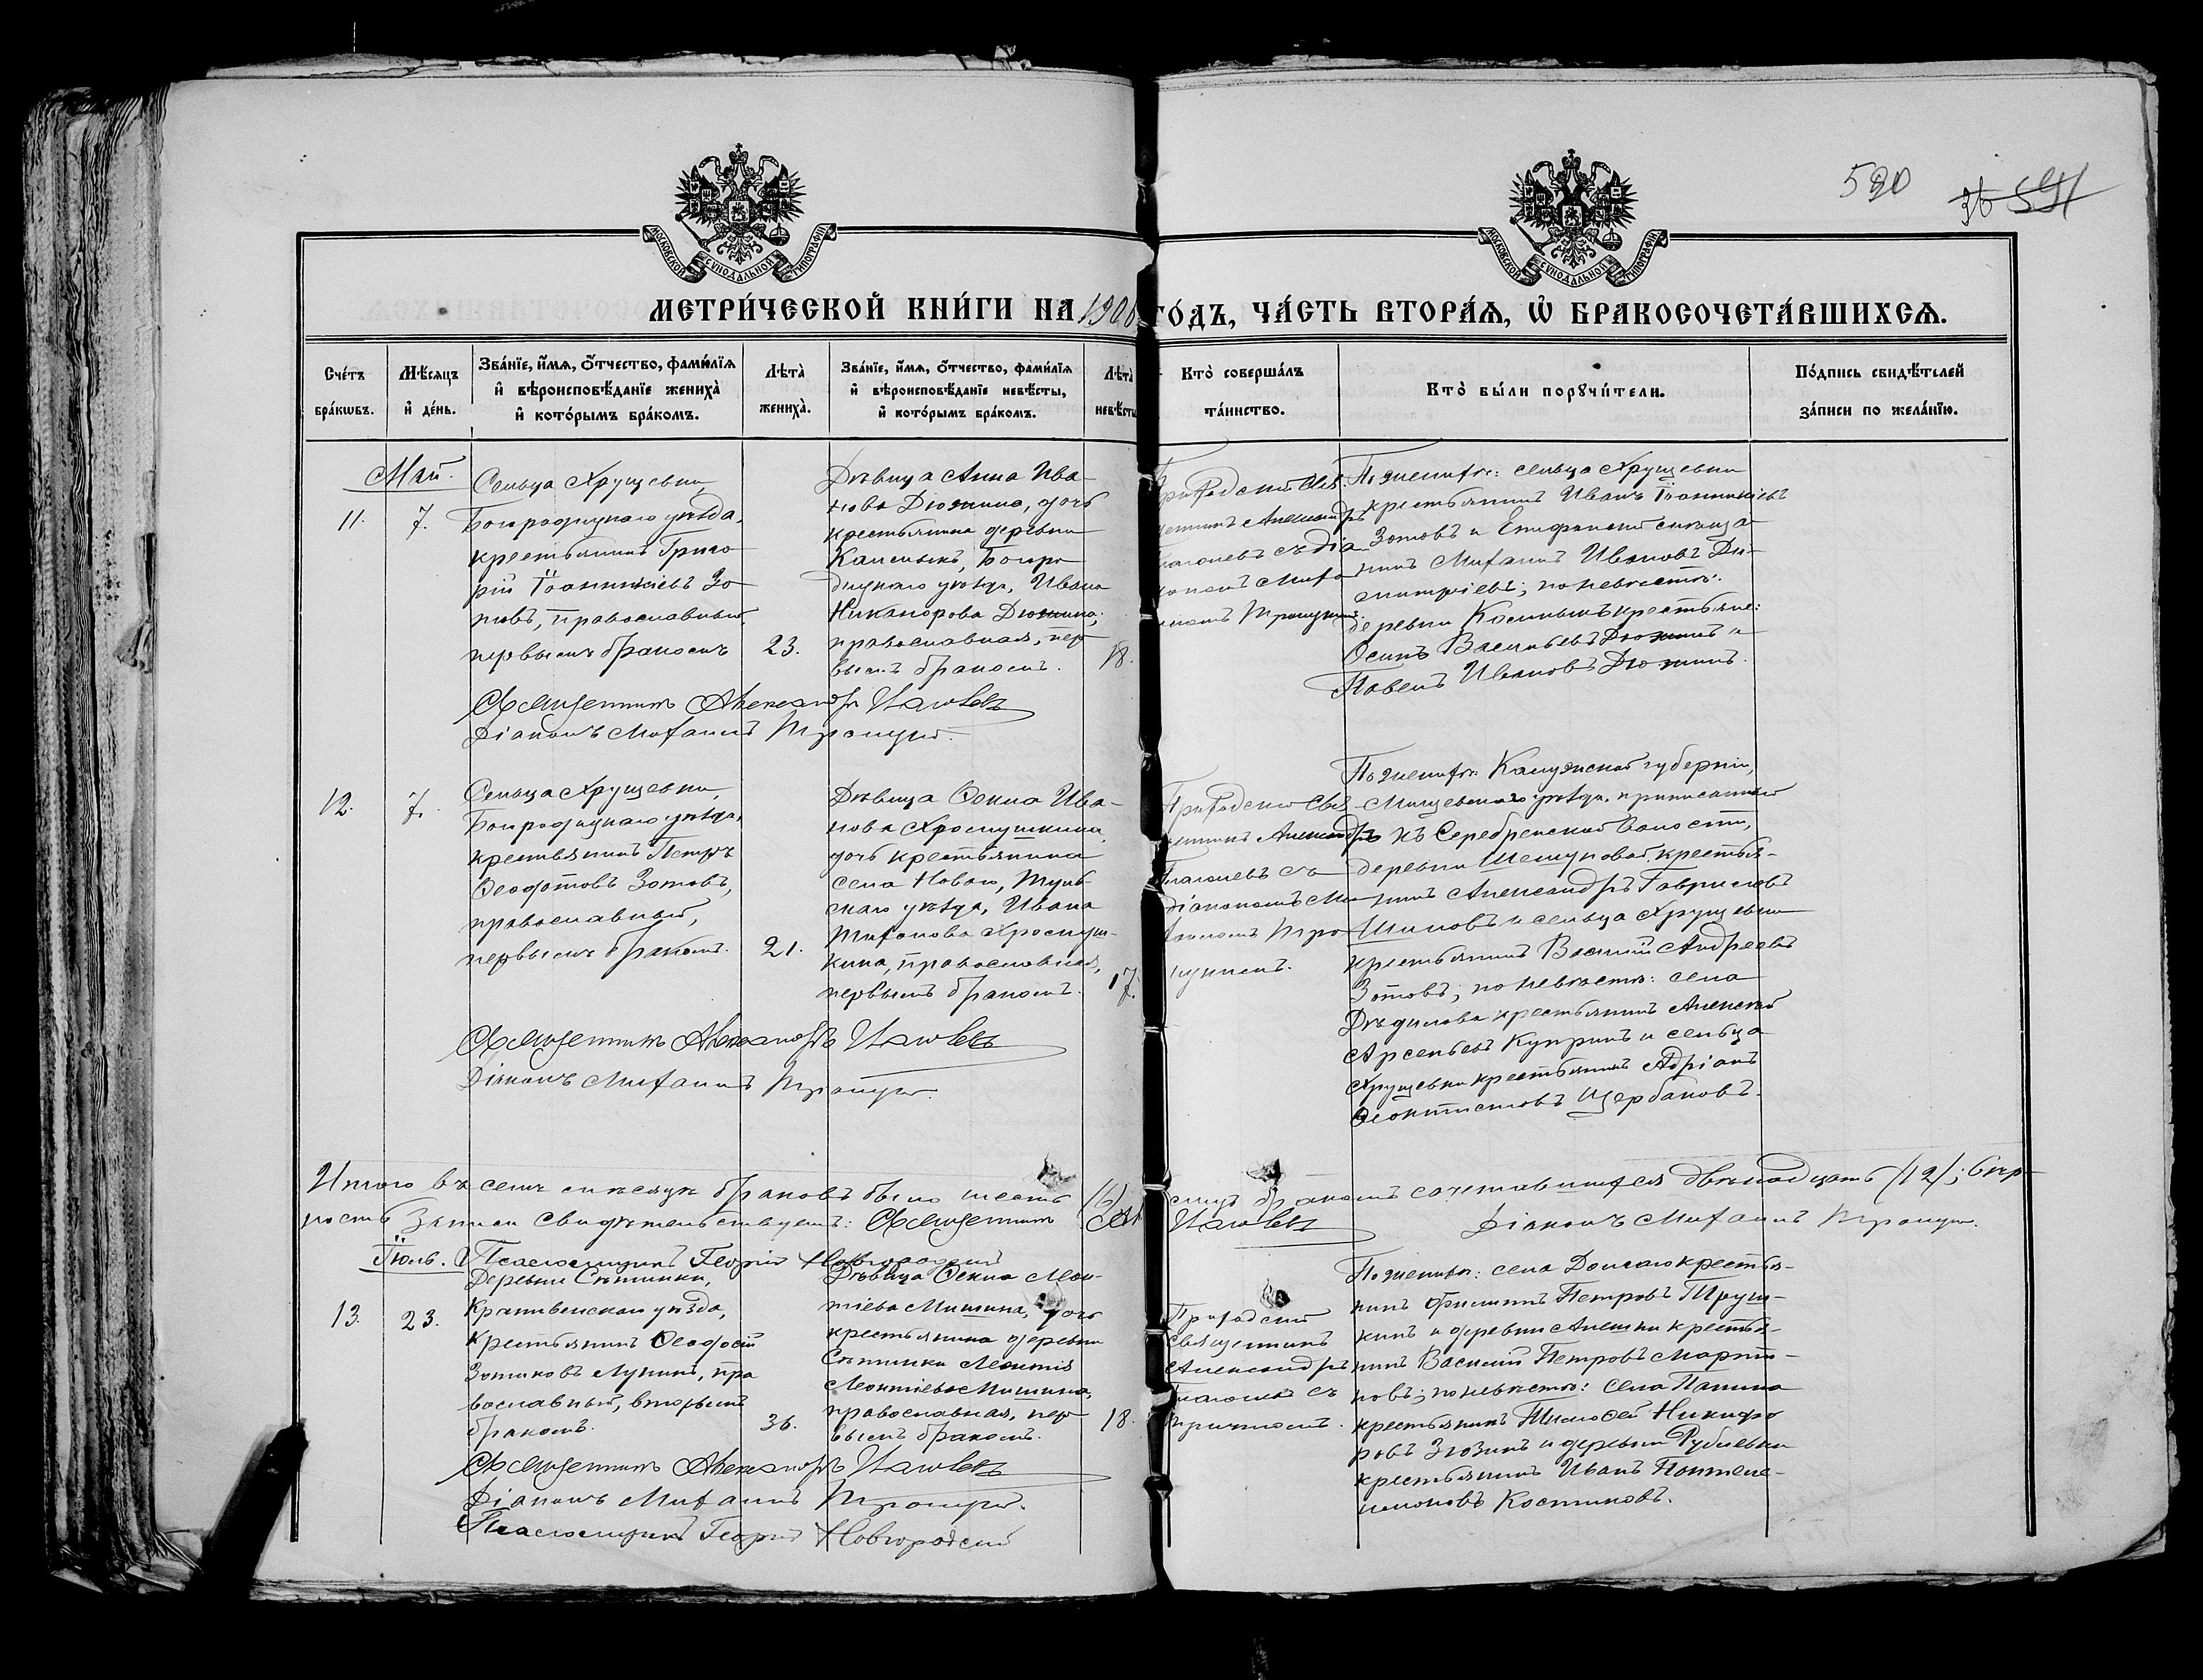 590
36 591
МОСКОВСКОЙ СУНОДАЛЬНОЙ ТИПОГРАФІИ
МОСКОВСКОЙ СУНОДАЛЬНОЙ ТИПОГРАФІИ
МЕТРИ́ЧЕСКОЙ КНИ́ГИ НА 1906 ГО́ДЪ, ЧА́СТЬ ВТОРА́Я, Ѡ҆ БРАКОСОЧЕТА́ВШИХСЯ.
Сче́тъ
бра́кѡвъ.
Мѣ́сяцъ
и҆ де́нь.
Зва́нїе, и҆́мя, ѻ҆́тчество, фами́лїя
и҆ вѣроисповѣ́данїе жениха̀
и҆ кото́рымъ бра́комъ.
Лѣта̀
жениха̀.
Зва́нїе, и҆́мя, ѻ҆́тчество, фами́лїя
и҆ вѣроисповѣ́данїе невѣ́сты,
и҆ кото́рымъ бра́комъ.
Лѣта̀
невѣ́сты
Кто̀ соверша́лъ
та́инство.
Кто̀ бы́ли порꙋчи́тели.
По́дпись свидѣ́телей
за́писи по жела́нїю.
Май.
11.
7.
Сельца Хрущевки,
Богородицкаго уѣзда,
крестьянинъ Григо
рій Іоанникіевъ Зо
товъ, православный
первымъ бракомъ
23.
Дѣвица Анна Ива-
нова Дюжина, дочь
крестьянина деревни
Богоро
дицкаго уѣзда, Ивана
Никанорова Дюжина,
православная, пер
вымъ бракомъ.
18.
Приходскій Свя
щенникъ Александръ
съ діа
кономъ Миха
иломъ Троицкимъ
По женихѣ: сельца Хрущевки
крестьянинъ Иванъ Іоанникіевъ
Зотовъ и Епифанскій
нинъ Михаилъ Ивановъ Ди-
митріевъ; по невѣстѣ:
деревни крестьяне:
Осипъ Васильевъ Дюжинъ и
Павелъ Ивановъ Дюжинъ.
Священникъ Александръ
Діаконъ Михаилъ Троицкій.
12.
7.
Сельца Хрущевки,
Богородицкаго уѣзда,
крестьянинъ Петръ
Ѳеодотовъ Зотовъ,
православный,
первымъ бракомъ.
21.
Дѣвица Ѳекла Ива-
нова Хромушкина,
дочь крестьянина
села Новаго, Туль-
скаго уѣзда, Ивана
Тихонова Хромуш-
кина, православная,
первымъ бракомъ.
17.
Приходскій Свя
щенникъ Александръ
съ
діакономъ Ми-
хаиломъ Тро
ицкимъ.
По женихѣ: Калужской губерніи,
Мещевскаго уѣзда, приписанный
къ Серебренской волости,
деревни Шемуновой, крестья-
нинъ Александръ Гавриловъ
Шиловъ и сельца Хрущевки
крестьянинъ Василій Андреевъ
Зотовъ; по невѣстѣ: села
Дѣдилова крестьянинъ Алексѣй
Арсеньевъ Купринъ и сельца
Хрущевки крестьянинъ Адріанъ
Ѳеоктистовъ Щербаковъ.
Священникъ Александръ
Діаконъ Михаилъ Троицкій.
Итого въ семъ мѣсяцѣ браковъ было шесть (6)
симъ бракомъ сочетавшихся двѣнадцать (12); вѣр-
ность записи свидѣтельствуемъ: Священникъ
Діаконъ Михаилъ Троицкій.
Псаломщикъ Георгій Новгородскій
Іюль.
13.
23.
Деревни Сѣтинки,
Крапивенскаго уѣзда,
крестьянинъ Ѳеодосій
Зотиковъ Лунинъ, пра
вославный, вторымъ
бракомъ.
36.
Дѣвица Ѳекла Леон-
тіева Мишина, дочь
крестьянина деревни
Сѣтинки Леонтія
Леонтіева Мишина,
православная, пер
вымъ бракомъ.
18.
Приходскій
священникъ
Александръ
съ
причтомъ.
По женихѣ: села Долгаго крестья-
нинъ Филиппъ Петровъ Труш-
кинъ и деревни Алешни крестья-
нинъ Василій Петровъ Марты-
новъ; по невѣстѣ: села Панина
крестьянинъ Тимоѳей Никифо
ровъ и деревни
крестьянинъ Иванъ Пантеле-
имоновъ Костиковъ.
Священникъ Александръ
Діаконъ Михаилъ Троицкій.
Псаломщикъ Георгій Новгородскій